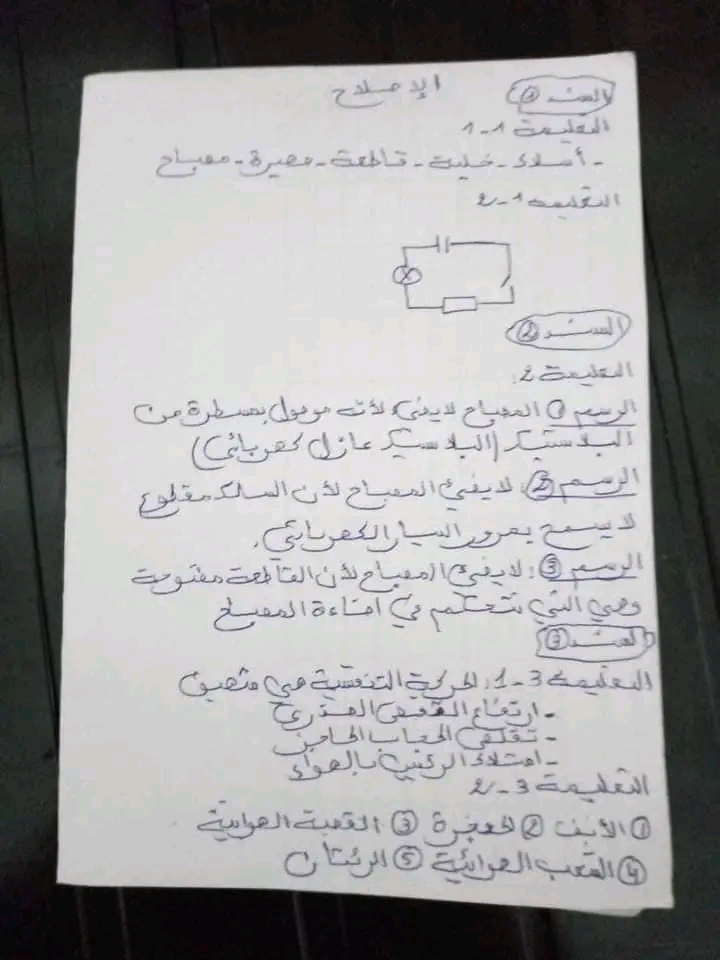 الإصلاح
السند 1
التعليمة 1-1
- أسلاك - خلية - قاطعة - مصيرة - مصباح
التعليمة 1-2
السند 2
التعليمة 2:
الرسم 1 المصباح لا يضيء لأنه موصول بمسطرة من
البلاستيك (البلاستيك عازل كهربائي)
الرسم 2: لا يضيء المصباح لأن السلك مقطوع
لا يسمح بمرور التيار الكهربائي.
الرسم 3: لا يضيء المصباح لأن القاطعة مفتوحة
وهي التي تتحكم في إضاءة المصباح
السند 3
التعليمة 3-1: الحركة التنفسية هي شهيق
- ارتفاع القفص الصدري
- تقلص الحجاب الحاجز
- امتلاء الرئتين بالهواء
التعليمة 3-2
1 الأنف 2 الحنجرة 3 القصبة الهوائية
4 الشعب الهوائية 5 الرئتان